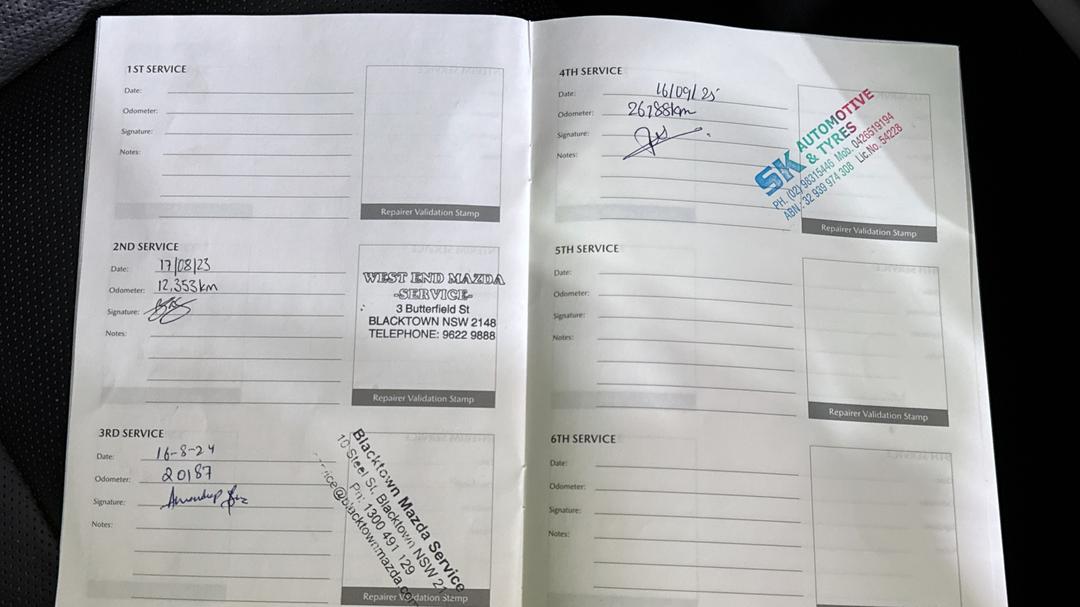 1ST SERVICE
Date:
Odometer:
Signature:
Notes:
Repairer Validation Stamp
2ND SERVICE
Date: 17/08/23
Odometer: 12,353km
Signature:
Notes:
WEST END MAZDA
-SERVICE-
3 Butterfield St
BLACKTOWN NSW 2148
TELEPHONE: 9622 9888
Repairer Validation Stamp
3RD SERVICE
Date: 16-8-24
Odometer: 20187
Signature:
Notes:
Blacktown Mazda Service
10 Steel St, Blacktown NSW 21
Ph: 1300 491 129
rvice@blacktownmazda.co
Repairer Validation Stamp
4TH SERVICE
Date: 16/09/25
Odometer: 26788km
Signature:
Notes:
SK AUTOMOTIVE
& TYRES
PH. (02) 98315446 Mob. 0426519194
ABN: 32 939 974 308 Lic.No. 54228
Repairer Validation Stamp
5TH SERVICE
Date:
Odometer:
Signature:
Notes:
Repairer Validation Stamp
6TH SERVICE
Date:
Odometer:
Signature:
Notes: